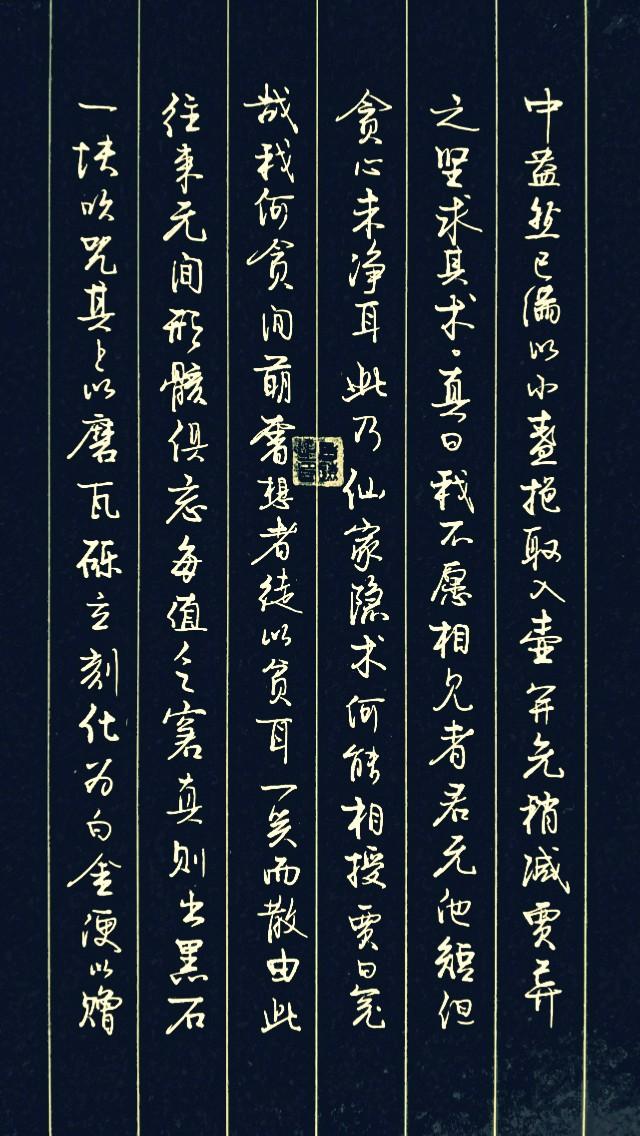 中盎然已满以小盏挹取入壶并无稍减贾异
之坚求其术真曰我不愿相见者君无他短但
贪心未净耳此乃仙家隐术何能相授贾曰冤
哉我何贪间萌奢想者徒以贫耳一笑而散由此
往来无间形骸俱忘每值乏窘真则出黑石
一块吹咒其上以磨瓦砾立刻化为白金便以赠